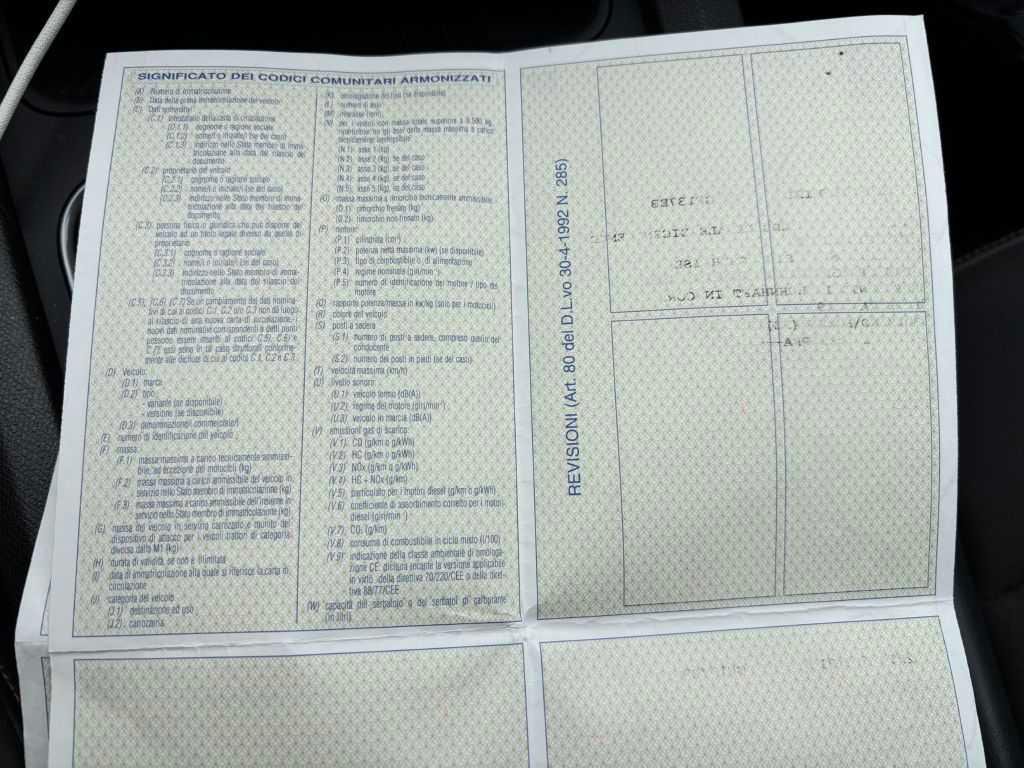 SIGNIFICATO DEI CODICI COMUNITARI ARMONIZZATI
(A) Numero di immatricolazione
(B) Data della prima immatricolazione del veicolo
(C) Dati nominativi
(C.1) intestatario della carta di circolazione
(C.1.1) cognome o ragione sociale
(C.1.2) nome/i o iniziale/i (se del caso)
(C.1.3) indirizzo nello Stato membro di imma-
tricolazione alla data del rilascio del
documento
(C.2) proprietario del veicolo
(C.2.1) cognome o ragione sociale
(C.2.2) nome/i o iniziale/i (se del caso)
(C.2.3) indirizzo nello Stato membro di imma-
tricolazione alla data del rilascio del
documento
(C.3) persona fisica o giuridica che può disporre del
veicolo ad un titolo legale diverso da quello di
proprietario
(C.3.1) cognome o ragione sociale
(C.3.2) nome/i o iniziale/i (se del caso)
(C.3.3) indirizzo nello Stato membro di imma-
tricolazione alla data del rilascio del
documento
(C.5), (C.6), (C.7) Se un cambiamento dei dati nomina-
tivi di cui ai codici C.1, C.2 e/o C.3 non dà luogo
al rilascio di una nuova carta di circolazione, i
nuovi dati nominativi corrispondenti a detti punti
possono essere inseriti ai codici C.5), C.6) e
C.7); essi sono in tal caso strutturati conforme-
mente alle diciture di cui ai codici C.1, C.2 e C.3.
(D) Veicolo:
(D.1) marca
(D.2) tipo
- variante (se disponibile)
- versione (se disponibile)
(D.3) denominazione/i commerciale/i
(E) numero di identificazione del veicolo
(F) massa:
(F.1) massa massima a carico tecnicamente ammissi-
bile, ad eccezione dei motocicli (kg)
(F.2) massa massima a carico ammissibile del veicolo in
servizio nello Stato membro di immatricolazione (kg)
(F.3) massa massima a carico ammissibile dell'insieme in
servizio nello Stato membro di immatricolazione (kg)
(G) massa del veicolo in servizio carrozzato e munito del
dispositivo di attacco per i veicoli trattori di categoria
diversa dalla M1 (kg)
(H) durata di validità, se non è illimitata
(I) data di immatricolazione alla quale si riferisce la carta di
circolazione
(J) categoria del veicolo
(J.1) destinazione ed uso
(J.2) carrozzeria
(K) omologazione del tipo (se disponibile)
(L) numero di assi
(M) interasse (mm)
(N) per i veicoli con massa totale superiore a 3.500 kg,
ripartizione tra gli assi della massa massima a carico
tecnicamente ammissibile
(N.1) asse 1 (kg)
(N.2) asse 2 (kg), se del caso
(N.3) asse 3 (kg), se del caso
(N.4) asse 4 (kg), se del caso
(N.5) asse 5 (kg), se del caso
(O) massa massima a rimorchio tecnicamente ammissibile
(O.1) rimorchio frenato (kg)
(O.2) rimorchio non frenato (kg)
(P) motore:
(P.1) cilindrata (cm³)
(P.2) potenza netta massima (kw) (se disponibile)
(P.3) tipo di combustibile o di alimentazione
(P.4) regime nominale (giri/min⁻¹)
(P.5) numero di identificazione del motore / tipo del
motore
(Q) rapporto potenza/massa in kw/kg (solo per i motocicli)
(R) colore del veicolo
(S) posti a sedere
(S.1) numero di posti a sedere, compreso quello del
conducente
(S.2) numero dei posti in piedi (se del caso)
(T) velocità massima (km/h)
(U) livello sonoro:
(U.1) veicolo fermo (dB(A))
(U.2) regime del motore (giri/min⁻¹)
(U.3) veicolo in marcia (dB(A))
(V) emissioni gas di scarico:
(V.1) CO (g/km o g/kWh)
(V.2) HC (g/km o g/kWh)
(V.3) NOx (g/km o g/kWh)
(V.4) HC + NOx (g/km)
(V.5) particolato per i motori diesel (g/km o g/kWh)
(V.6) coefficiente di assorbimento corretto per i motori
diesel (giri/min⁻¹)
(V.7) CO₂ (g/km)
(V.8) consumo di combustibile in ciclo misto (l/100)
(V.9) indicazione della classe ambientale di omologa-
zione CE: dicitura recante la versione applicabile
in virtù della direttiva 70/220/CEE o della diret-
tiva 88/77/CEE
(W) capacità del serbatoio o dei serbatoi di carburante
(in litri).
REVISIONI (Art. 80 del D.L.vo 30-4-1992 N. 285)